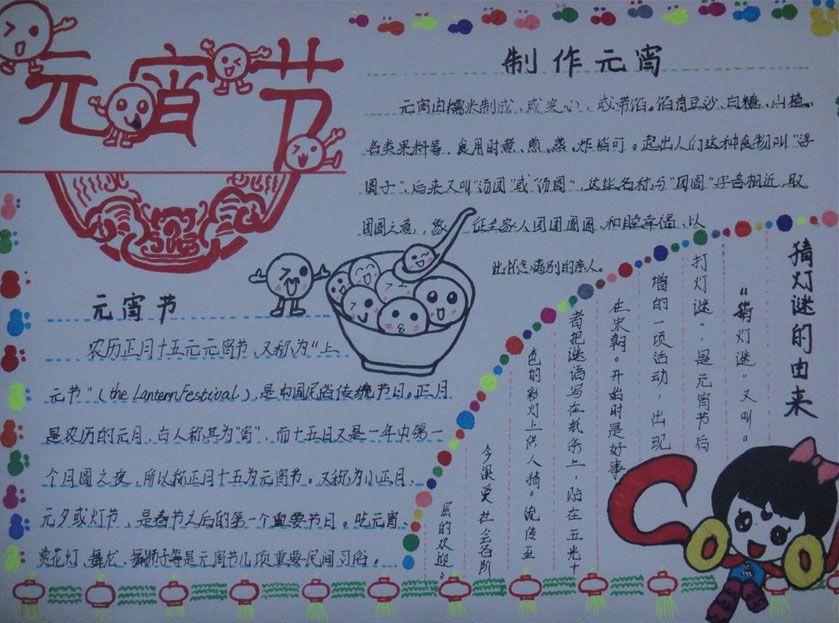 元宵节
制作元宵
元宵由糯米制成,或实心,或带馅。馅有豆沙、白糖、山楂、
各类果料等,食用时煮、煎、蒸、炸皆可。起出人们这种食物叫“浮
圆子”,后来又叫“汤团”或“汤圆”,这些名称与“团圆”字音相近,取
团圆之意,象征全家人团团圆圆,和睦幸福,以
此怀念离别的亲人。
元宵节
农历正月十五元元宵节,又称为“上
元节”(the Lantern Festival),是中国民俗传统节日。正月
是农历的元月,古人称其为“宵”,而十五日又是一年中第一
个月圆之夜,所以称正月十五为元宵节。又称为小正月、
元夕或灯节,是春节之后的第一个重要节日。吃元宵、
赏花灯、舞龙、舞狮子等是元宵节几项重要民间习俗。
猜灯谜的由来
“猜灯谜”又叫“
打灯谜”,是元宵节后
增的一项活动,出现
在宋朝。开始时是好事
者把谜语写在纸条上,贴在五光十
色的彩灯上供人猜。流传至
今深受社会各阶
层的欢迎。